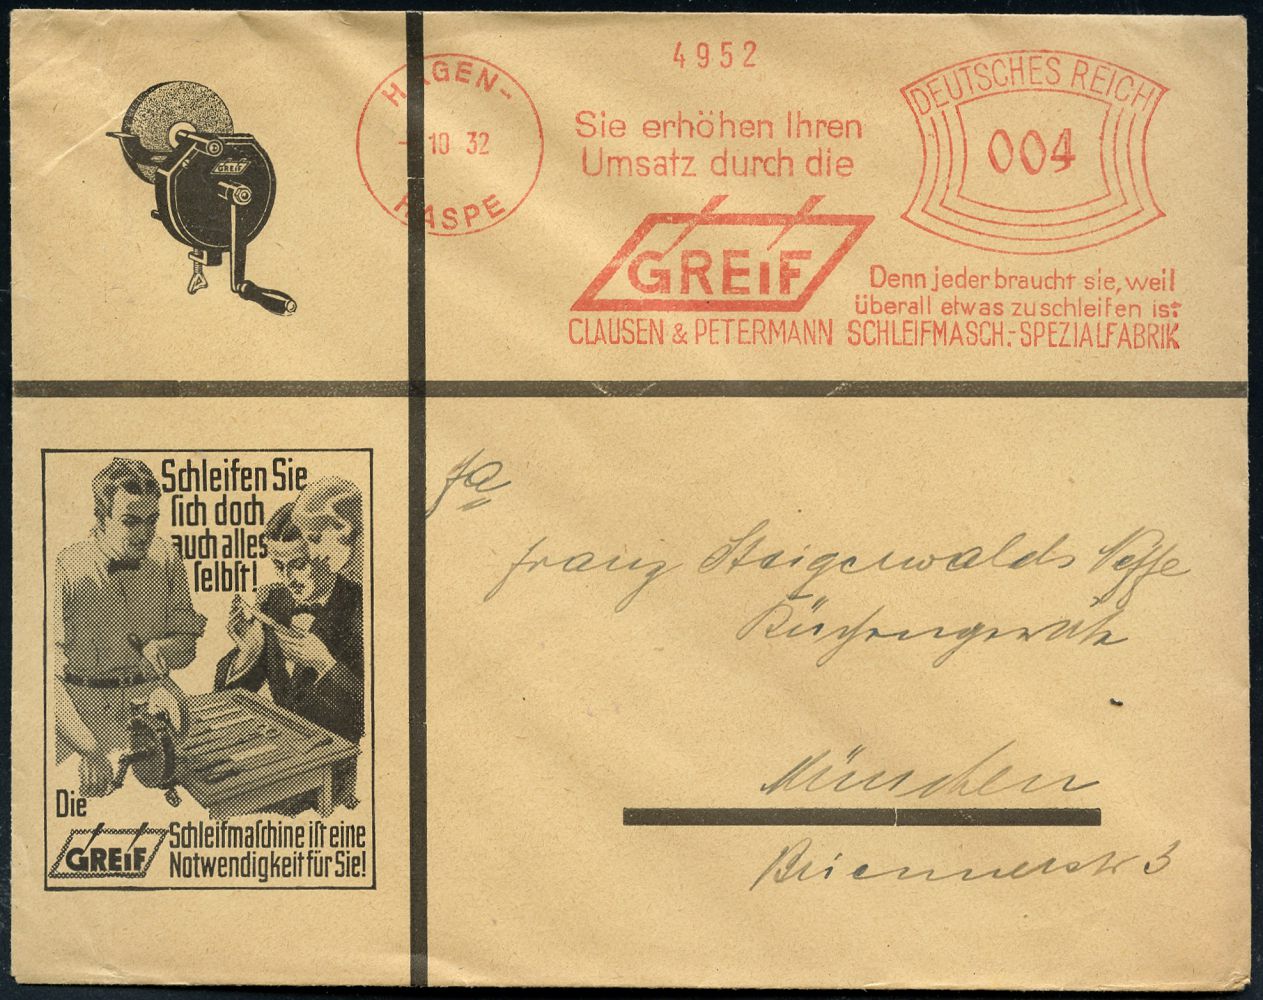 4952
HAGEN-
- 10 32
HASPE
Sie erhöhen Ihren
Umsatz durch die
GREiF
DEUTSCHES REICH
004
Denn jeder braucht sie, weil
überall etwas zu schleifen ist
CLAUSEN & PETERMANN SCHLEIFMASCH.-SPEZIALFABRIK
GREiF
Schleifen Sie
ſich doch
auch alles
ſelbſt!
Die
GREiF Schleifmaſchine iſt eine
Notwendigkeit für Sie!
Fa
Franz Steigerwalds Neffe
Küchengeräte
München
Briennerstr 3